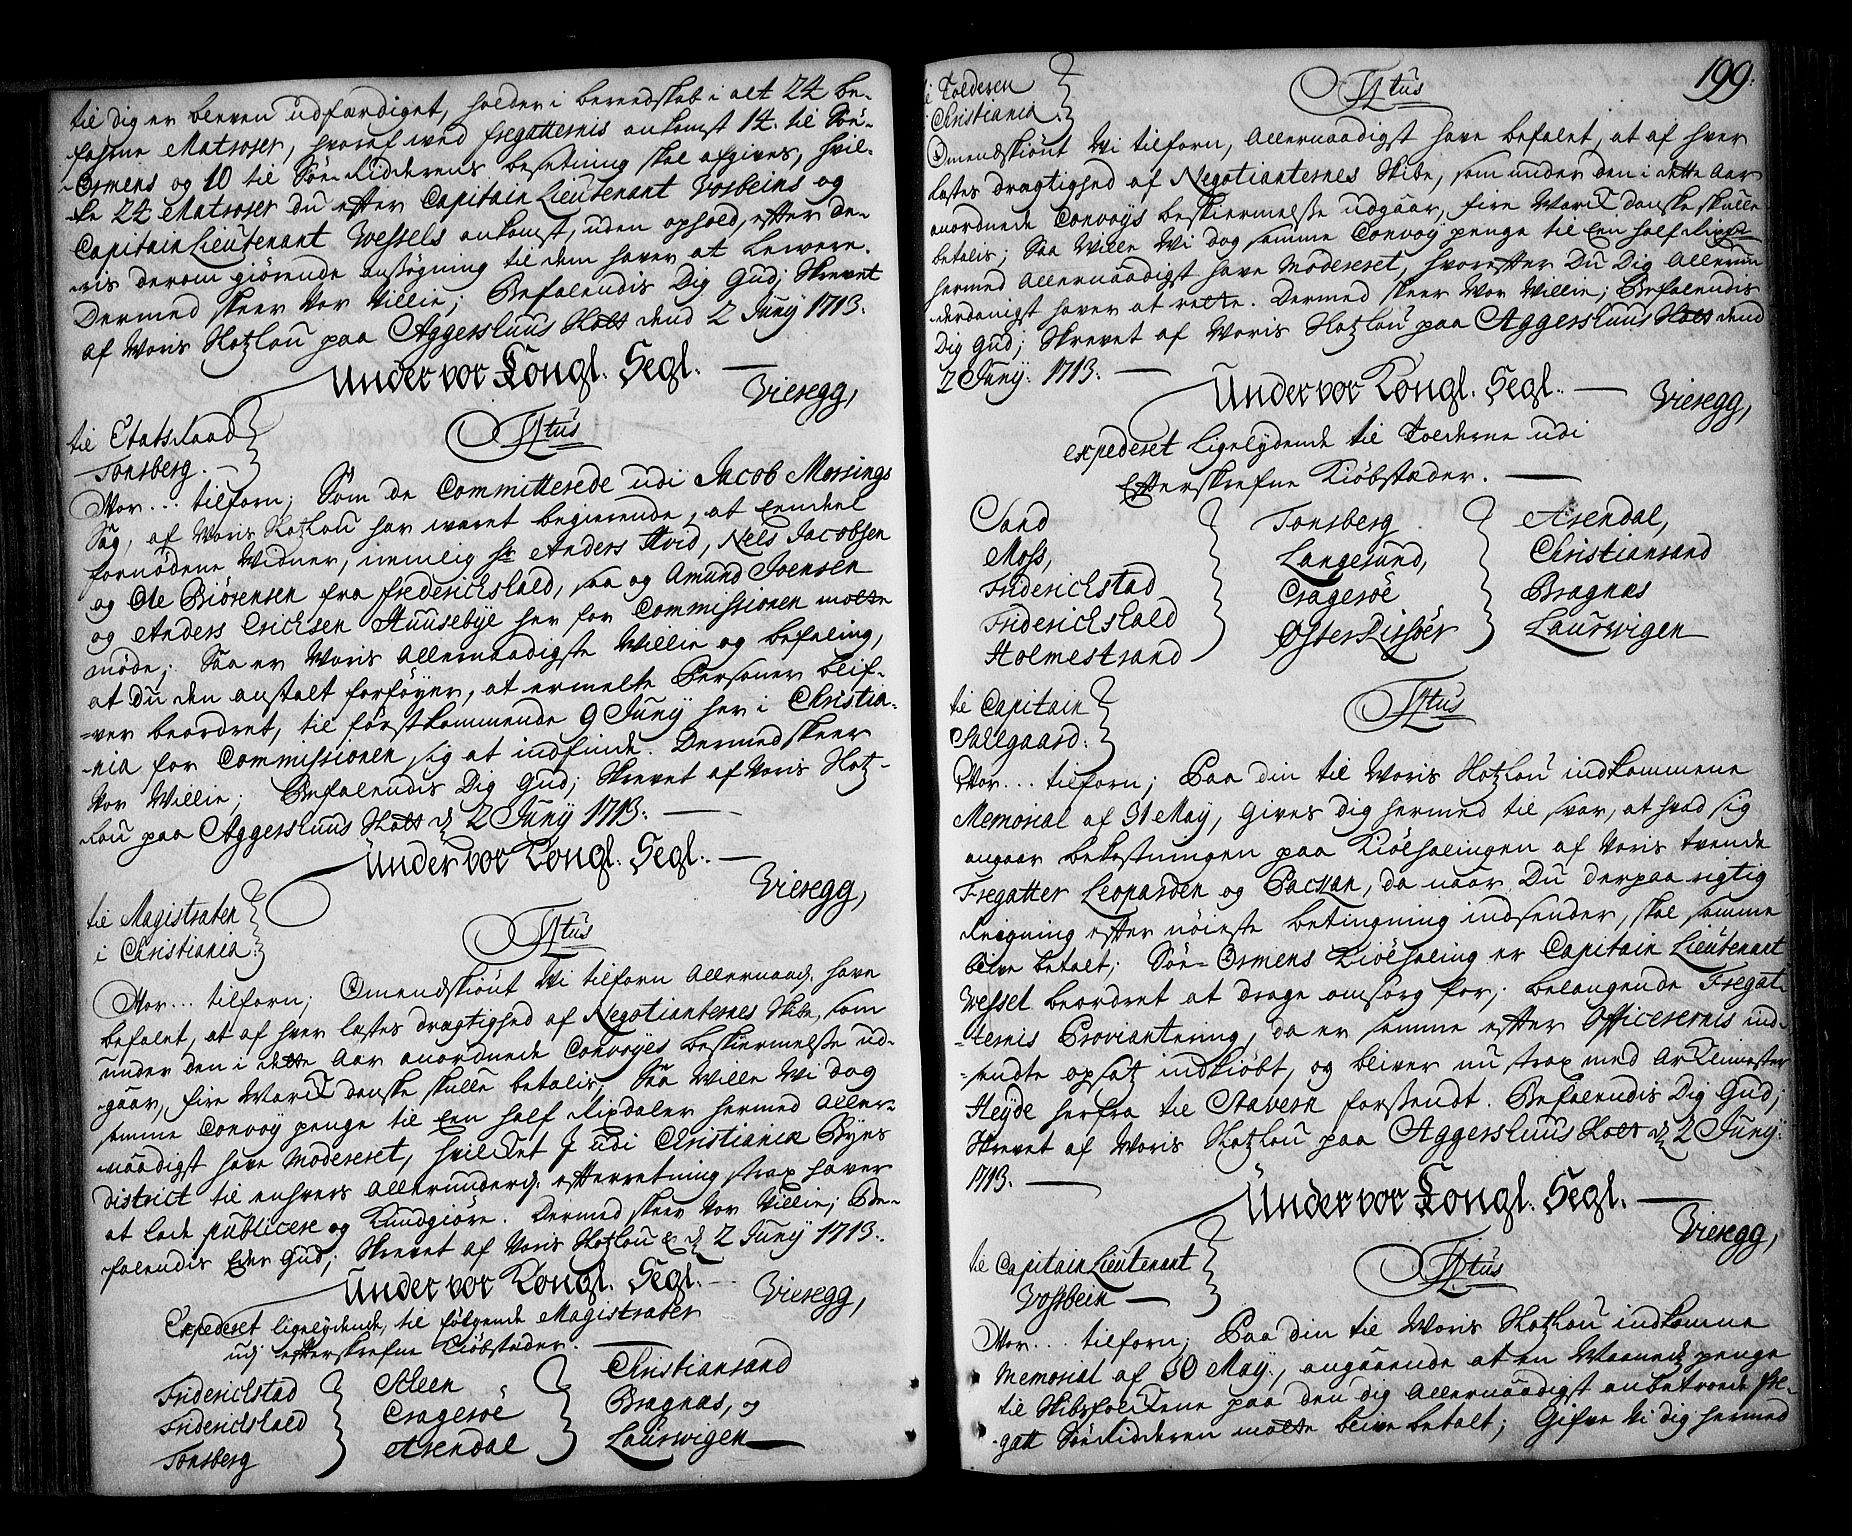 til dig er bleven udfærdiget, holder i beredskab i alt 24 be-
-farne Matroser, hvoraf wed fregatternis ankomst 14. til Søe-
Ormens og 10 til Søe-Ridderens besetning skal afgives, hvil-
-ke 24 Matroser du efter Capitain Lieutenant Vosbeins og
Capitain Lieutenant Wessels ankomst, uden ophold, efter de-
-ris derom giørende ansøgning til dem hawer at lewere.
Dermed skeer Vor Villie; Befalendis Dig Gud; Skrevet
af Woris Slotzlou paa Aggershuus Slott dend 2 Juny 1713.
Under vor Kongl. Segl.
Vieregg,
til Etatsraad
Tonsberg.
Ttus
Vor... tilforn; Som de Committerede udi Jacob Morsings
Sag, af Woris Slotzlou har weret begierende, at eendeel
fornødene Widner, nemlig hr Anders Hvid, Nels Jacobsen
og Ole Biørensen fra Friderichshald, saa og Amund Joensen
og Anders Erichsen Huusebye her for Commissionen motte
møde; Saa er Woris Allernaadigste Willie og befaling,
at Du den anstalt forføyer, at ermelte Personer blif-
-ver beordret, til førstkommende 9 Juny her i Christia-
-nia for Commissionen sig at indfinde. Dermed skeer
Vor Willie; Befalendis Dig Gud; Skrevet af Voris Slotz-
lou paa Aggershuus Slott d 2 Juny 1713.
Under vor Kongl. Segl.
Vieregg,
til Magistraten
i Christiania.
Ttus
Vor... tilforn; Omendskiønt Wi tilforn Allernaad. have
befalet, at af hver læstes drægtighed af Negotianternes Skibe, som
under den i dette Aar anordnede Convoyes beskiermelse ud-
-gaar, fire Mark danske skulle betalis, Saa Wille Wi dog
samme Convoy penge til Een half Rixdaler hermed Aller-
-naadigst have Modereret, hvilket I udi Christiania Byes
district til enhvers Allerunderd. efterretning strax hawer
at lade publicere og Kundgiøre. Dermed skeer Vor Villie; Be-
falendis Eder Gud; Skrevet af Voris Slotzlou & d 2 Juny 1713.
Under vor Kongl. Segl.
Vieregg,
Expederet ligelydende, til følgende Magistrater
udj efterskrefne Kiøbstæder.
Friderichstad
Friderichshald
Tonsberg
Skeen
Cragerøe
Arendal
Christiansand
Bragnæs, og
Laurwigen
199.
til Tolderen
Christiania.
Ttus
Omendskiønt Wi tilforn, Allernaadigst have befalet, at af hver
læstes drægtighed af Negotianternes Skibe, som under den i dette Aar
anordnede Convoys beskiermelse udgaar, fire Mark danske skulle
betalis; Saa Wille Wi dog samme Convoy penge til Een half Rixdr
hermed Allernaadigst have Modereret, hvorefter Du Dig Allerun
derdanigst hawer at rette. Dermed skeer Wor Villie; Befalendis
Dig Gud; Skrevet af Woris Slotzlou paa Aggershuus Slott dend
2 Juny. 1713.
Under vor Kongl. Segl.
Vieregg,
expederet Ligelydende til Tolderne udi
Efterskrefne Kiøbstæder.
Sand
Moss,
Friderichstad
Friderichshald
Holmestrand
Tonsberg
Langesund,
Cragerøe
Øster Riisøer
Arendal,
Christiansand
Bragnæs
Laurwigen
til Capitain
Salegaard.
Ttus
Vor... tilforn; Paa din til Woris Slotzlou indkommene
Memorial af 31 May, gives Dig hermed til svar, at hvad sig
angaar bekostningen paa Kiølhalingen af Voris tvende
Fregatter Leoparden og Packan, da naar Du derpaa rigtig
Reigning efter nøieste betingning indsender, skal samme
blive betalt; Søe-Ormens Kiølhaling er Capitain Lieutenant
Vessel beordret at drage omsorg for; belangende Fregat-
-ternis Proviantering, da er samme efter Officerernis ind-
-sendte opsatz indkiøbt, og bliver nu strax med Arklimester
Heyde herfra til Stavern forsendt. Befalendis Dig Gud;
Skrevet af Woris Slotzlou paa Aggershuus Slott d 2 Juny.
1713.
Under vor Kongl. Segl.
Vieregg,
til Capitain Lieutenant
Vossbein
Ttus
Vor... tilforn; Paa din til Woris Slotzlou indkomne
Memorial af 30 May., angaaende at en Maaneds penge
til Skibsfolkene paa den dig Allernaadigst anbetroede fre-
-gatt Søe Ridderen motte blive betalt; Gifve Vi dig hermed